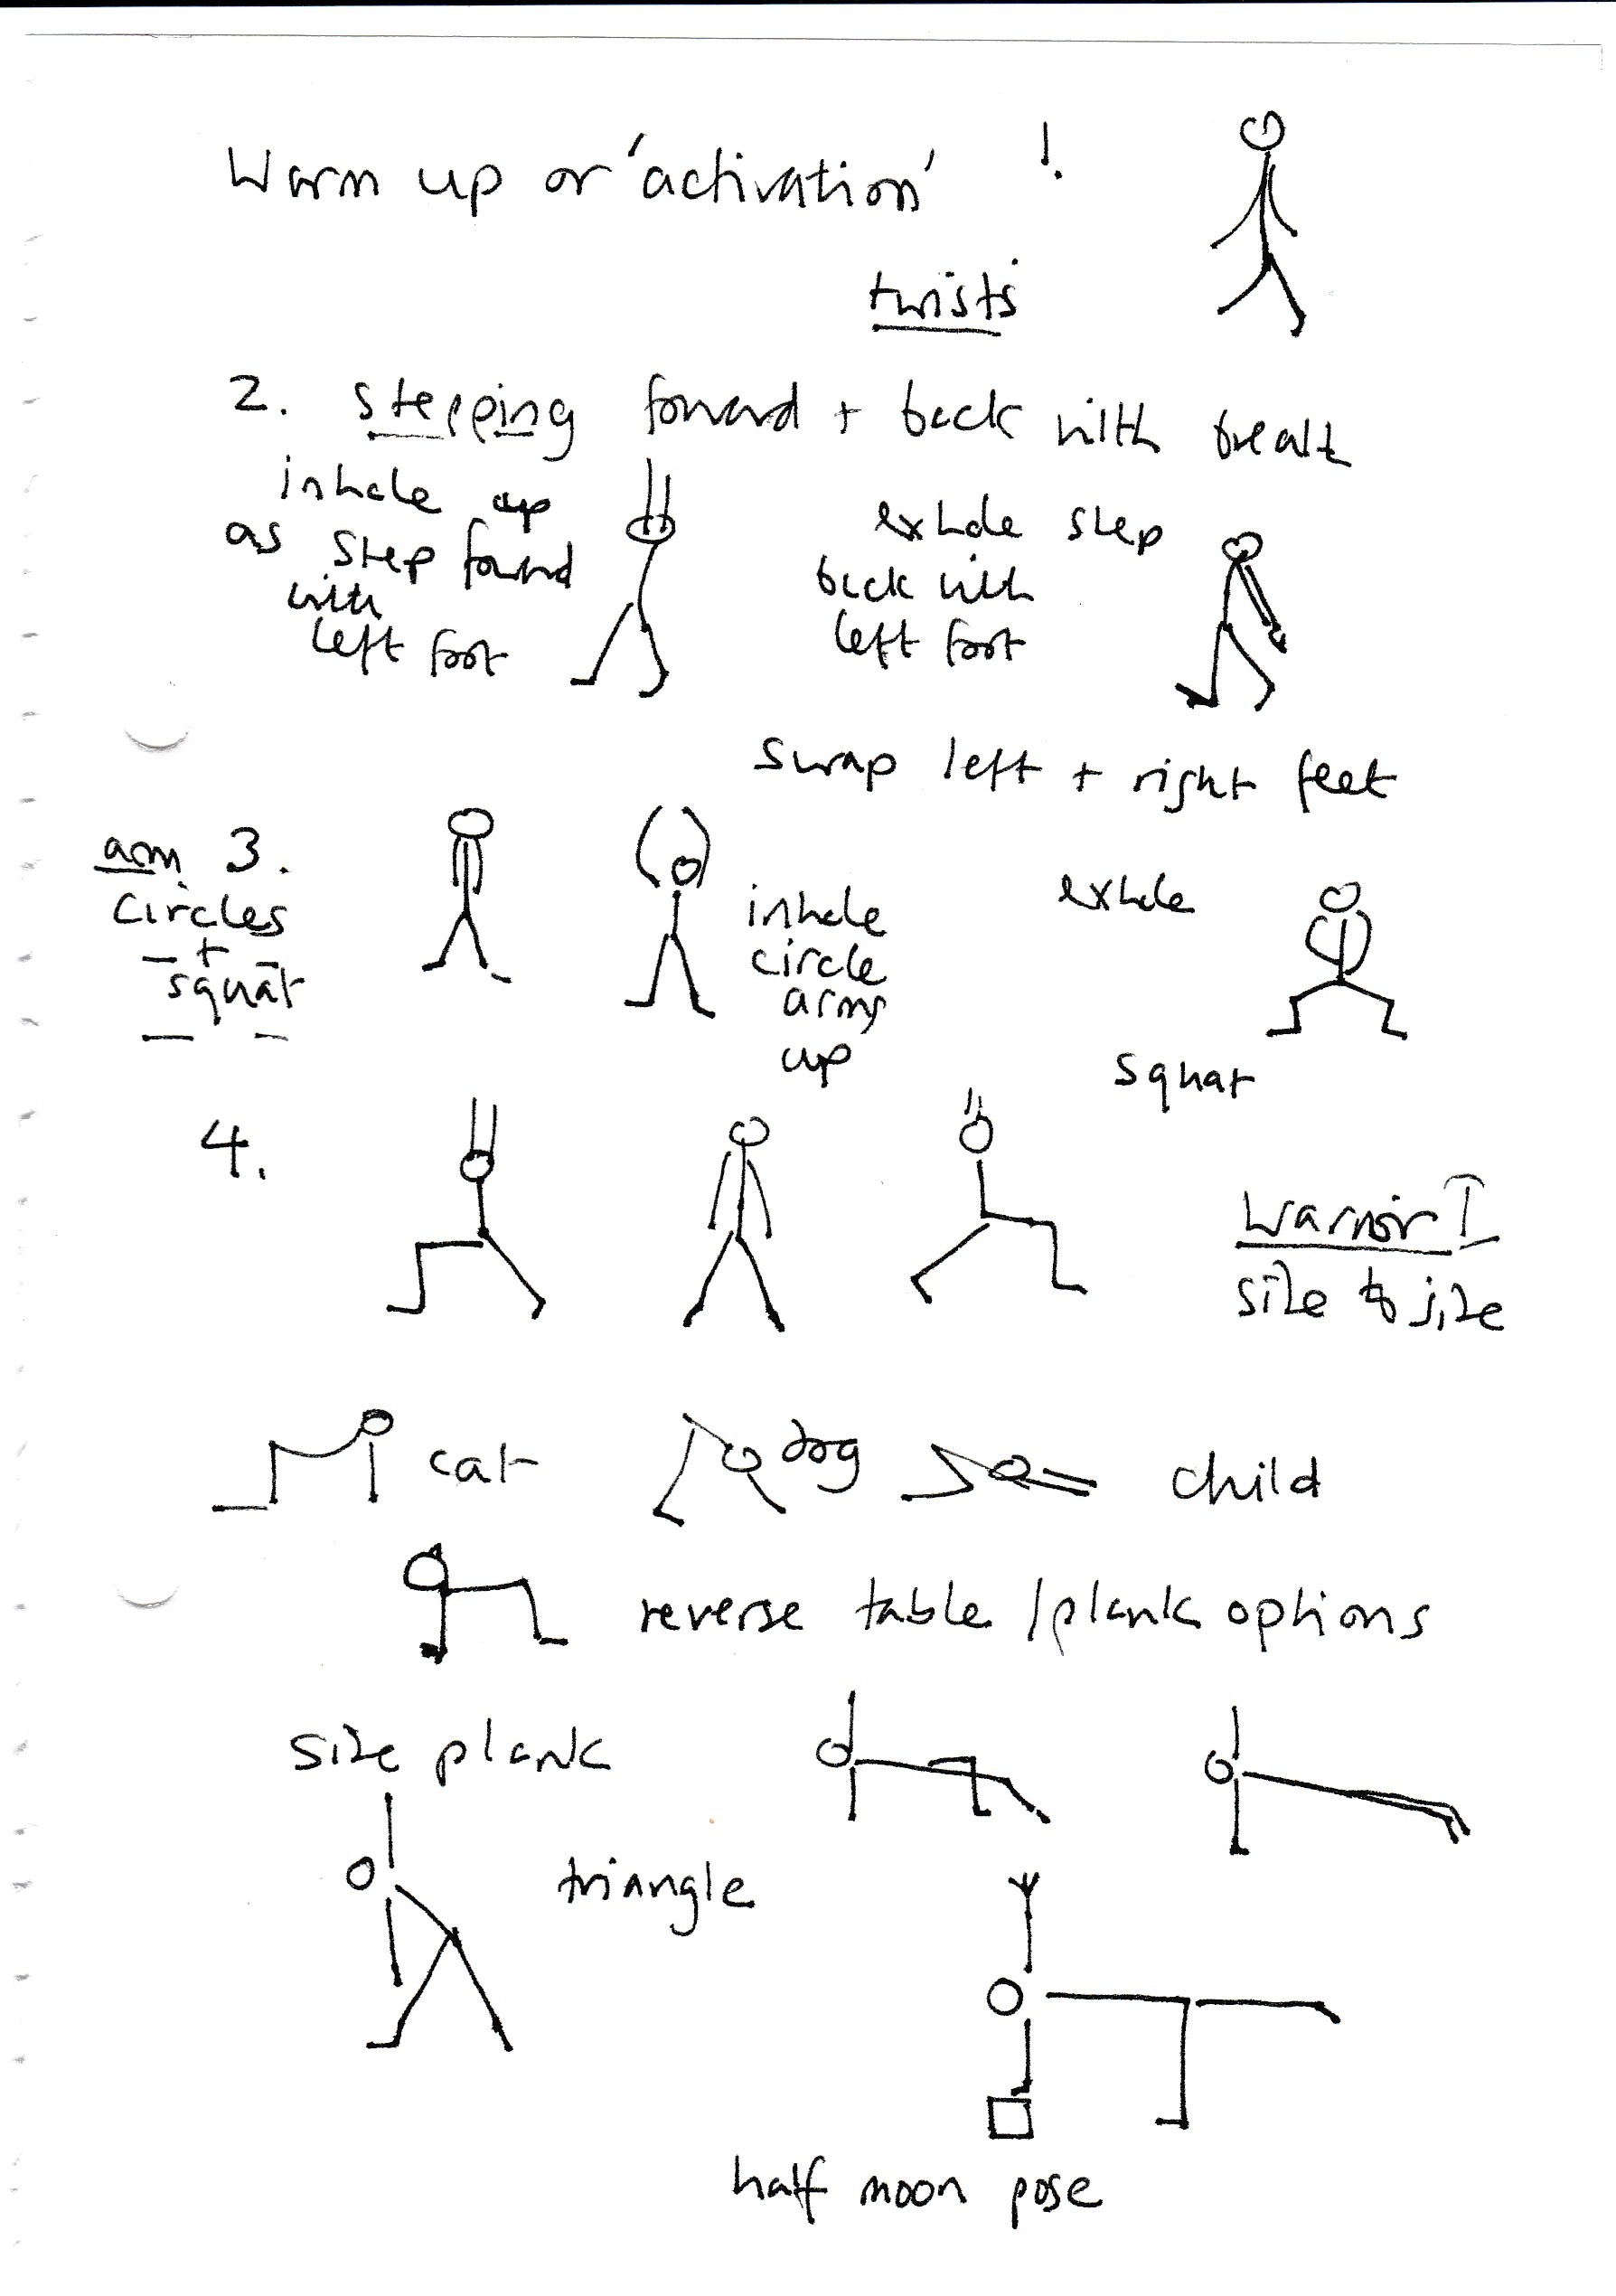 Warm up or 'activation' 1.
twists
2. stepping forward + back with breath
inhale up
as step forward
with
left foot
exhale step
back with
left foot
swap left + right feet
arm 3.
circles
+
squat
inhale
circle
arms
up
exhale
squat
4.
Warrior I
side to side
cat
dog
child
reverse table / plank options
side plank
triangle
half moon pose